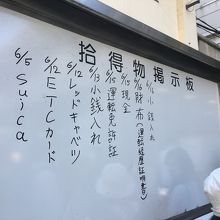 拾得物掲示板
6/16 小銭入れ
6/16 財布(運転経歴証明書)
6/15 現金
6/15 運転免許証
6/13 小銭入れ
6/12 レッドキャベツ
6/12 ETCカード
6/5 suica